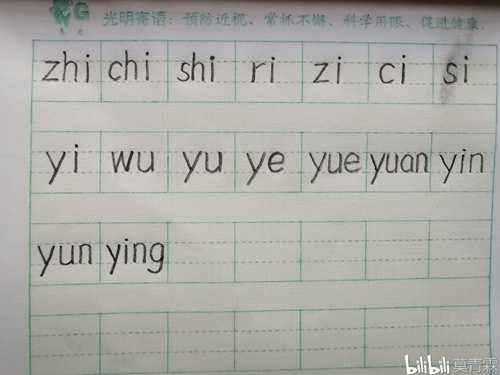 G 光明寄语：预防近视、常抓不懈、科学用眼、促进健康。
zhi chi shi ri zi ci si
yi wu yu ye yue yuan yin
yun ying
bilibili 莫青霖